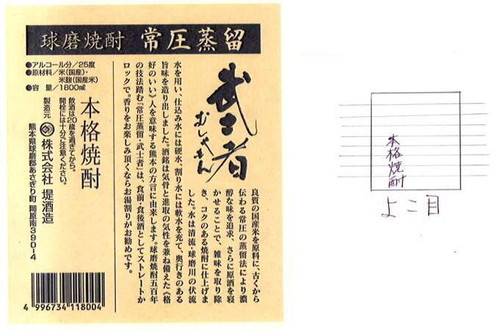 球磨焼酎 常圧蒸留
●アルコール分/25度
●原材料/米(国産)・
米麹(国産米)
●容 量/1800㎖
武士者
むしゃもん
良質の国産米を原料に、古くから
伝わる常圧の蒸留法により濃
醇な味を追求、さらに原酒を寝
かせることで、雑味を取り除
き、コクのある焼酎に仕上げま
した。水は清流・球磨川の伏流
水を用い、仕込み水には硬水、割り水には軟水を充て、奥行きのある
旨味を造り出しました。酒銘は気骨と進取の気性を兼ね備えた《格
好のいい》人を意味する熊本の方言に由来します。球磨焼酎五百年
の技法踏む「常圧蒸留・武士者」は、食前・食後酒としてストレートか
ロックで。香りをお楽しみ頂くならお湯割りがお勧めです。
本格焼酎
飲酒は20歳を過ぎてから。
開栓には十分ご注意ください。
製造元 株式会社 堤酒造
熊本県球磨郡あさぎり町 岡原南390-4
4 996734 118004
本格焼酎
よこ目